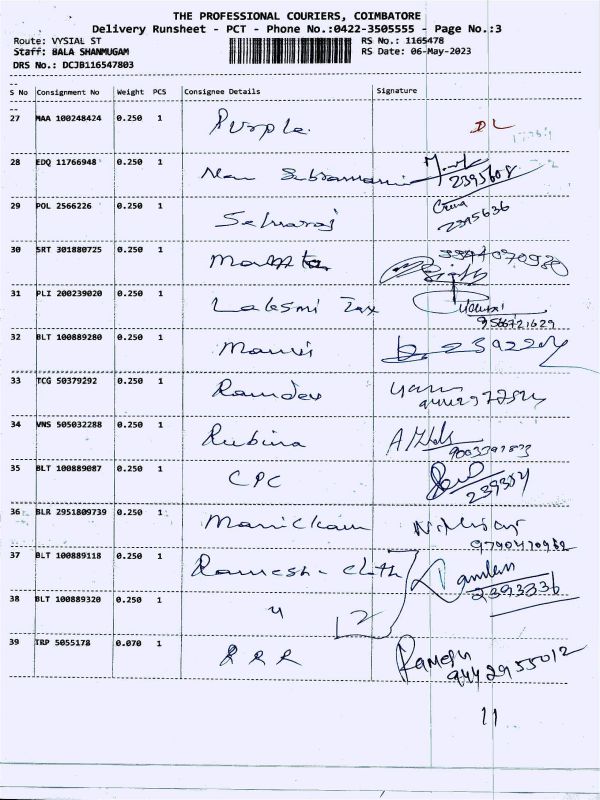 THE PROFESSIONAL COURIERS, COIMBATORE
Delivery Runsheet - PCT - Phone No.:0422-3505555 - Page No.:3
Route: VYSIAL ST
Staff: BALA SHANMUGAM
DRS No.: DCJB116547803
RS No.: 1165478
RS Date: 06-May-2023
S No Consignment No Weight PCS Consignee Details Signature
27 MAA 100248424 0.250 1 Purple DL
28 EDQ 11766948 0.250 1 2395608
29 POL 2566226 0.250 1 Selvaraj 2395636
30 SRT 301880725 0.250 1
31 PLI 200239020 0.250 1 Laksmi Tax 9566721629
32 BLT 100889280 0.250 1
33 TCG 50379292 0.250 1 Ramdev
34 VNS 505032288 0.250 1 Rubina
35 BLT 100889087 0.250 1 CPC
36 BLR 2951809739 0.250 1 Manickam
37 BLT 100889118 0.250 1 Ramesh - cloth
38 BLT 100889320 0.250 1 " 2 2393336
39 TRP 5055178 0.070 1 RRR Ramesh 9442955012
11